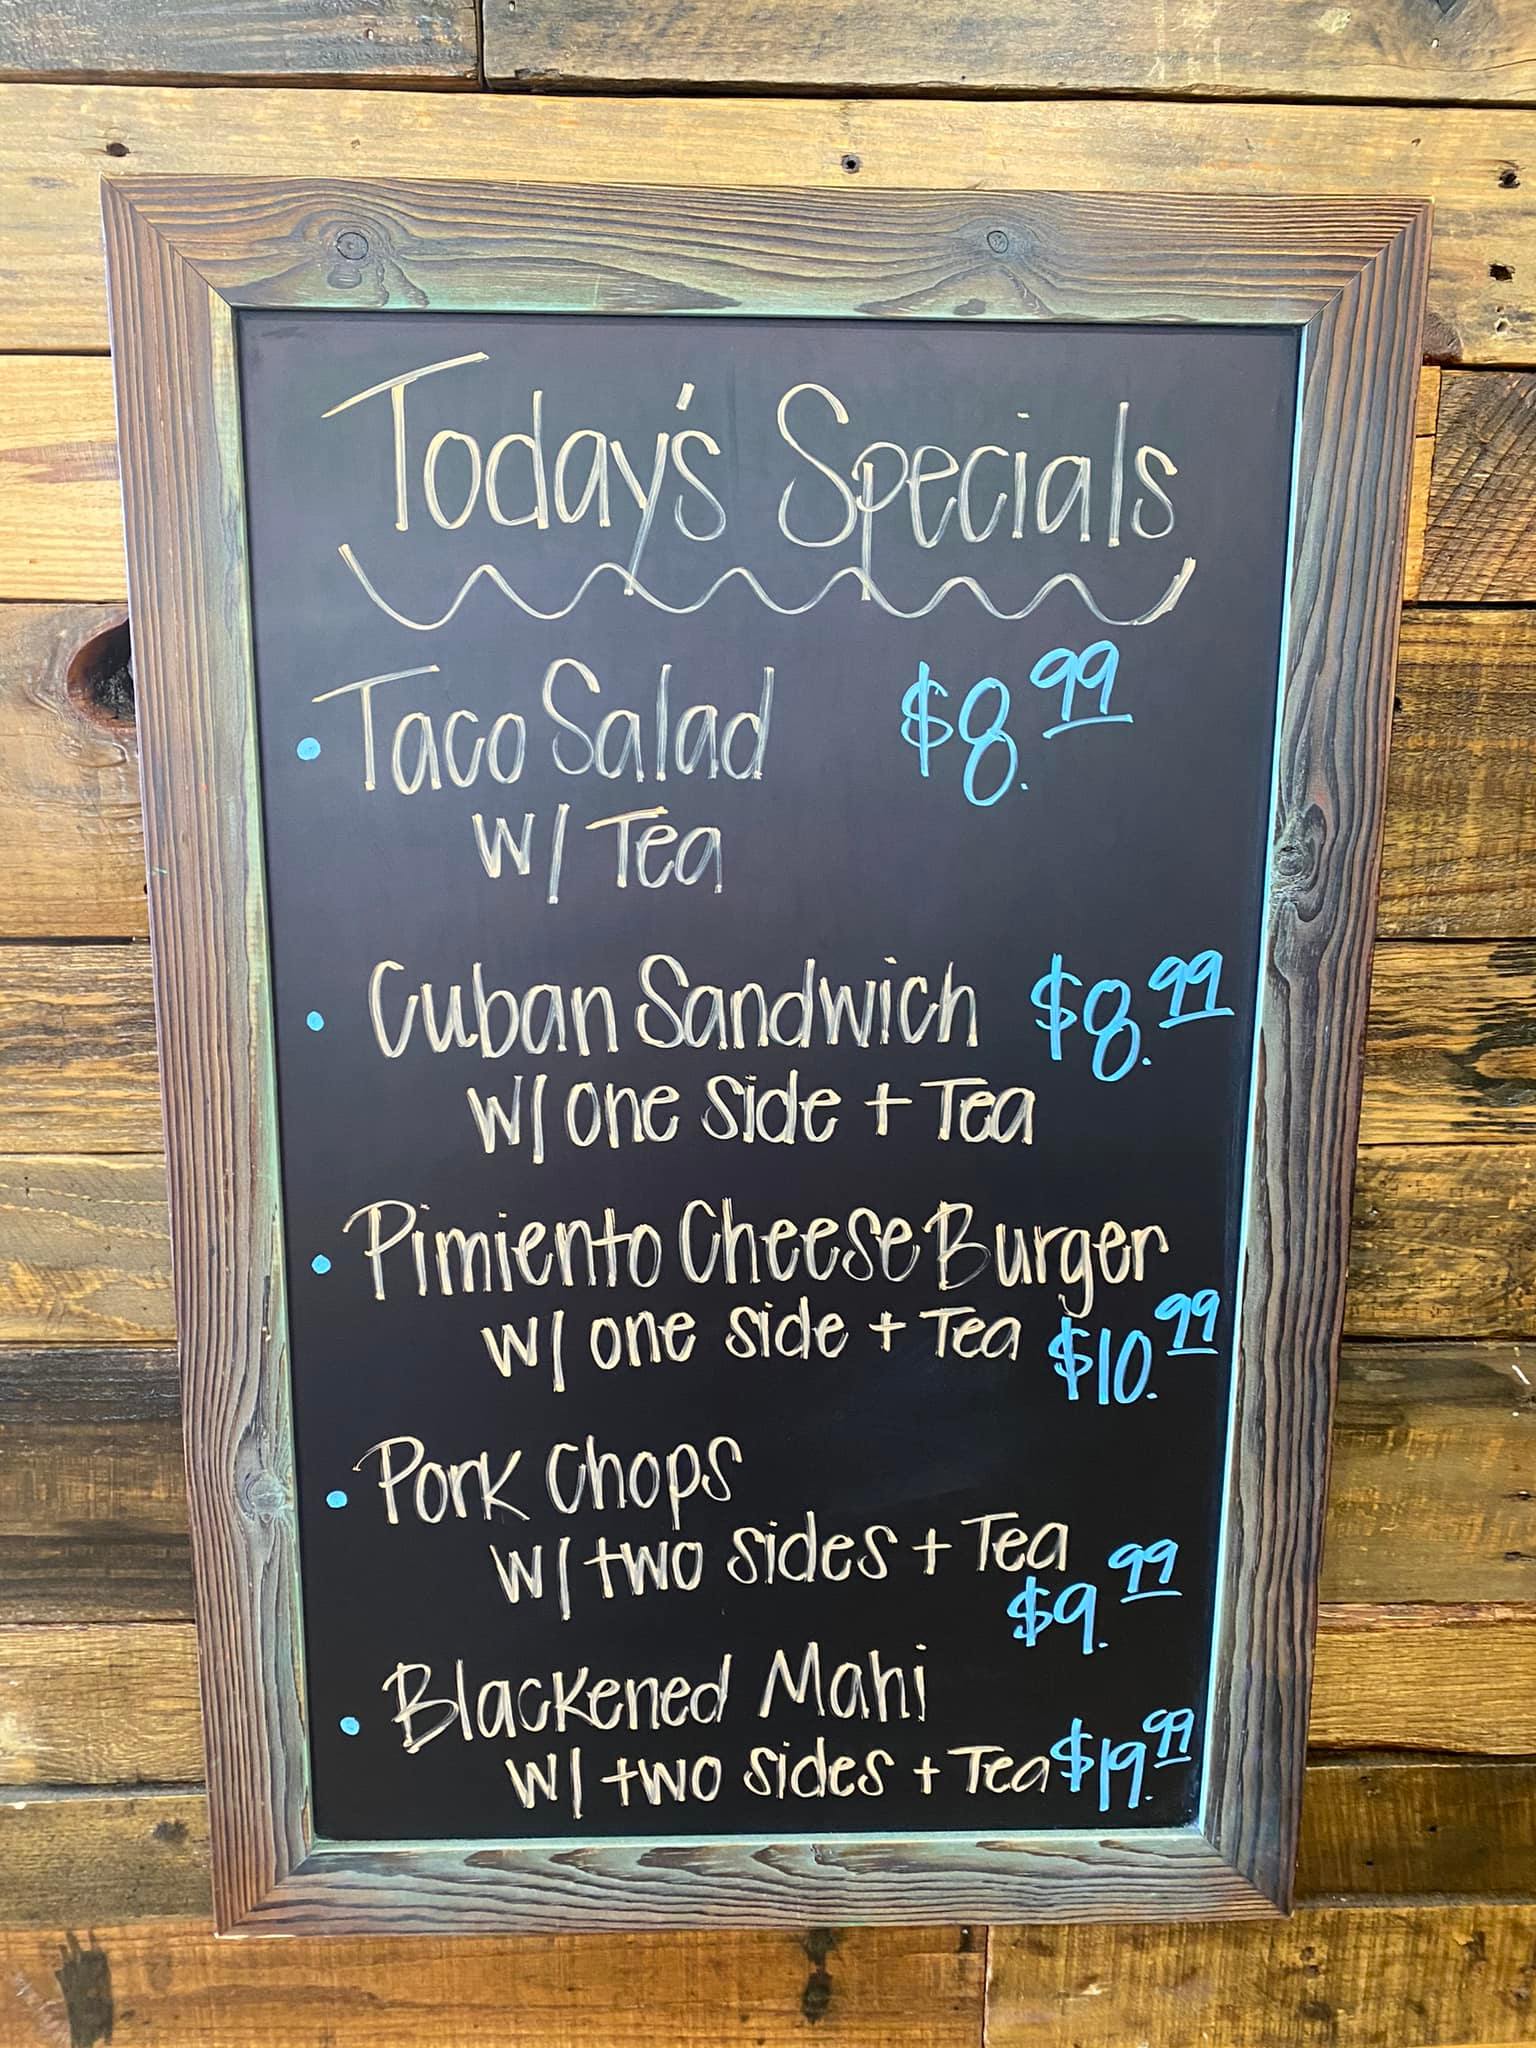 Today's Specials
• Taco Salad $8.99
w/ Tea
• Cuban Sandwich $8.99
w/ one side + Tea
• Pimiento Cheese Burger
w/ one side + Tea $10.99
• Pork Chops
w/ two sides + Tea
$9.99
• Blackened Mahi
w/ two sides + Tea $19.99